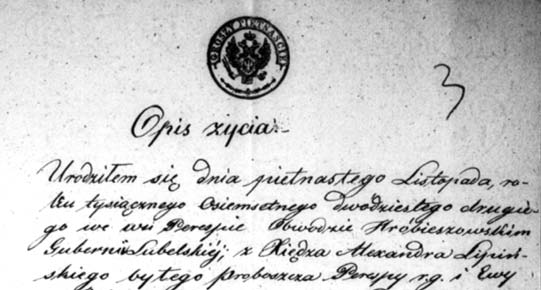 GROSZY PIETNAŚCIE
3
Opis życia.
Urodziłem się dnia piętnastego Listopada, ro-
ku tysiącznego osiemsetnego dwudziestego drugie-
go we wsi Perespie Obwodzie Hrobieszowskim
Gubernii Lubelskiéj, z Xiędza Alexandra Lipiń-
skiego byłego proboszcza Perespy r.g. i Ewy